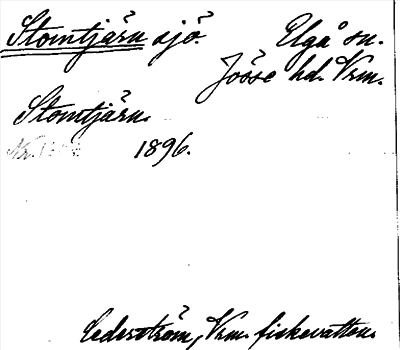 Stomtjärn sjö. Elgå sn.
Jösse hd. Vrm.
Stomtjärn.
1896.
Cederström, Vrm. fiskevatten.